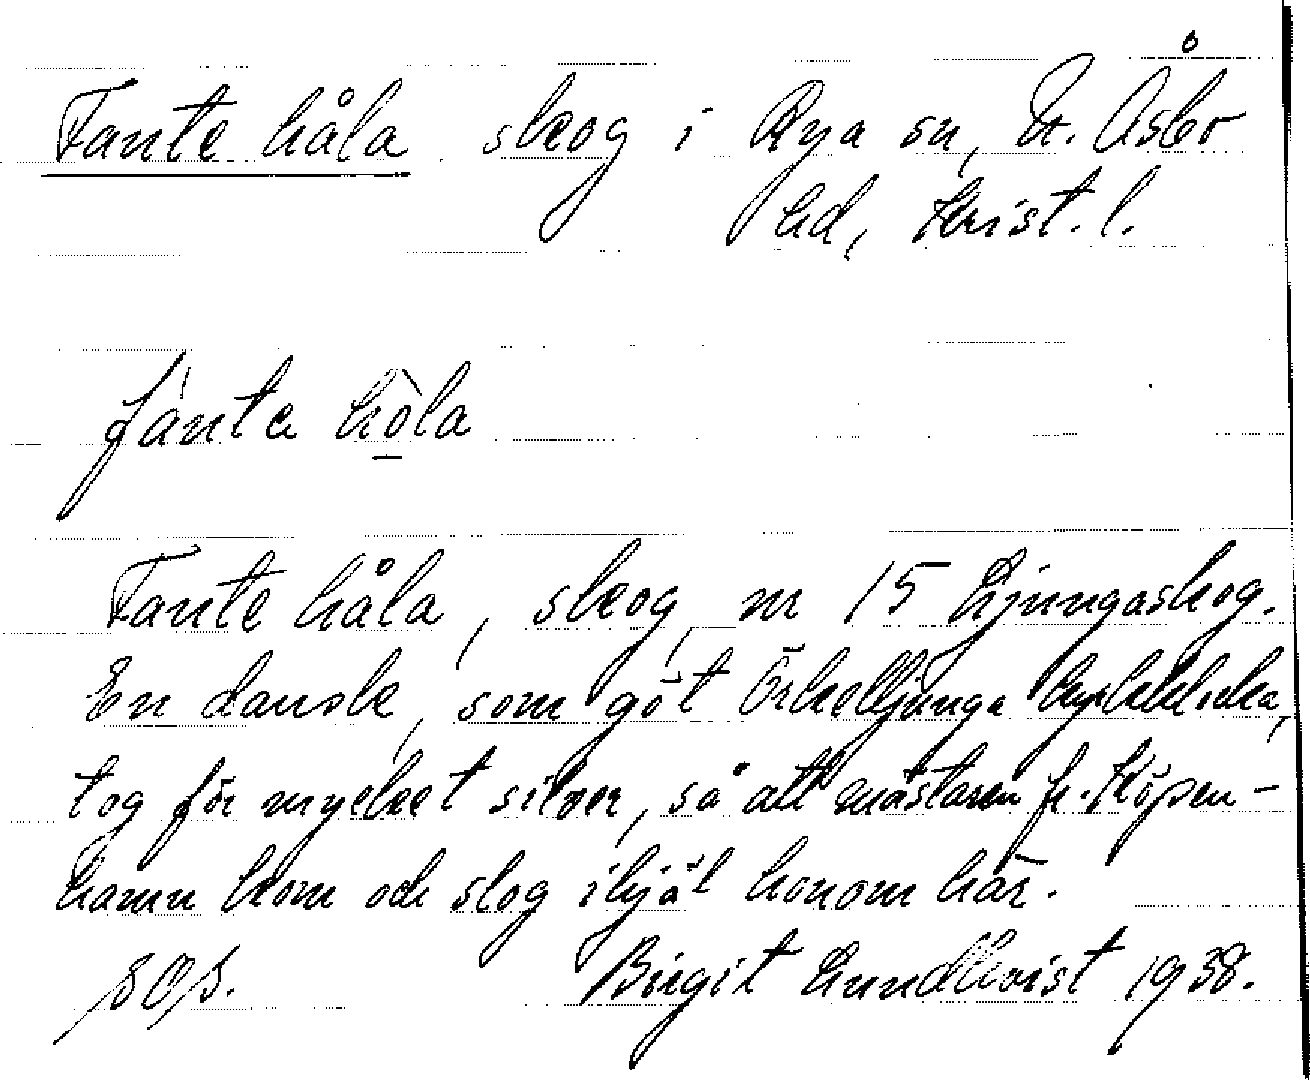 Fante håla skog i Rya sn, N. Åsbo
hd, Krist. l.
fánte hò̠la
Fante håla, skog, nr 15 Ljungaskog.
En dansk, som göt Örkelljunga kyrkklocka,
tog för mycket silver, så att mästaren fr. Köpen-
hamn kom och slog ihjäl honom här.
Birgit Lundkvist 1938.